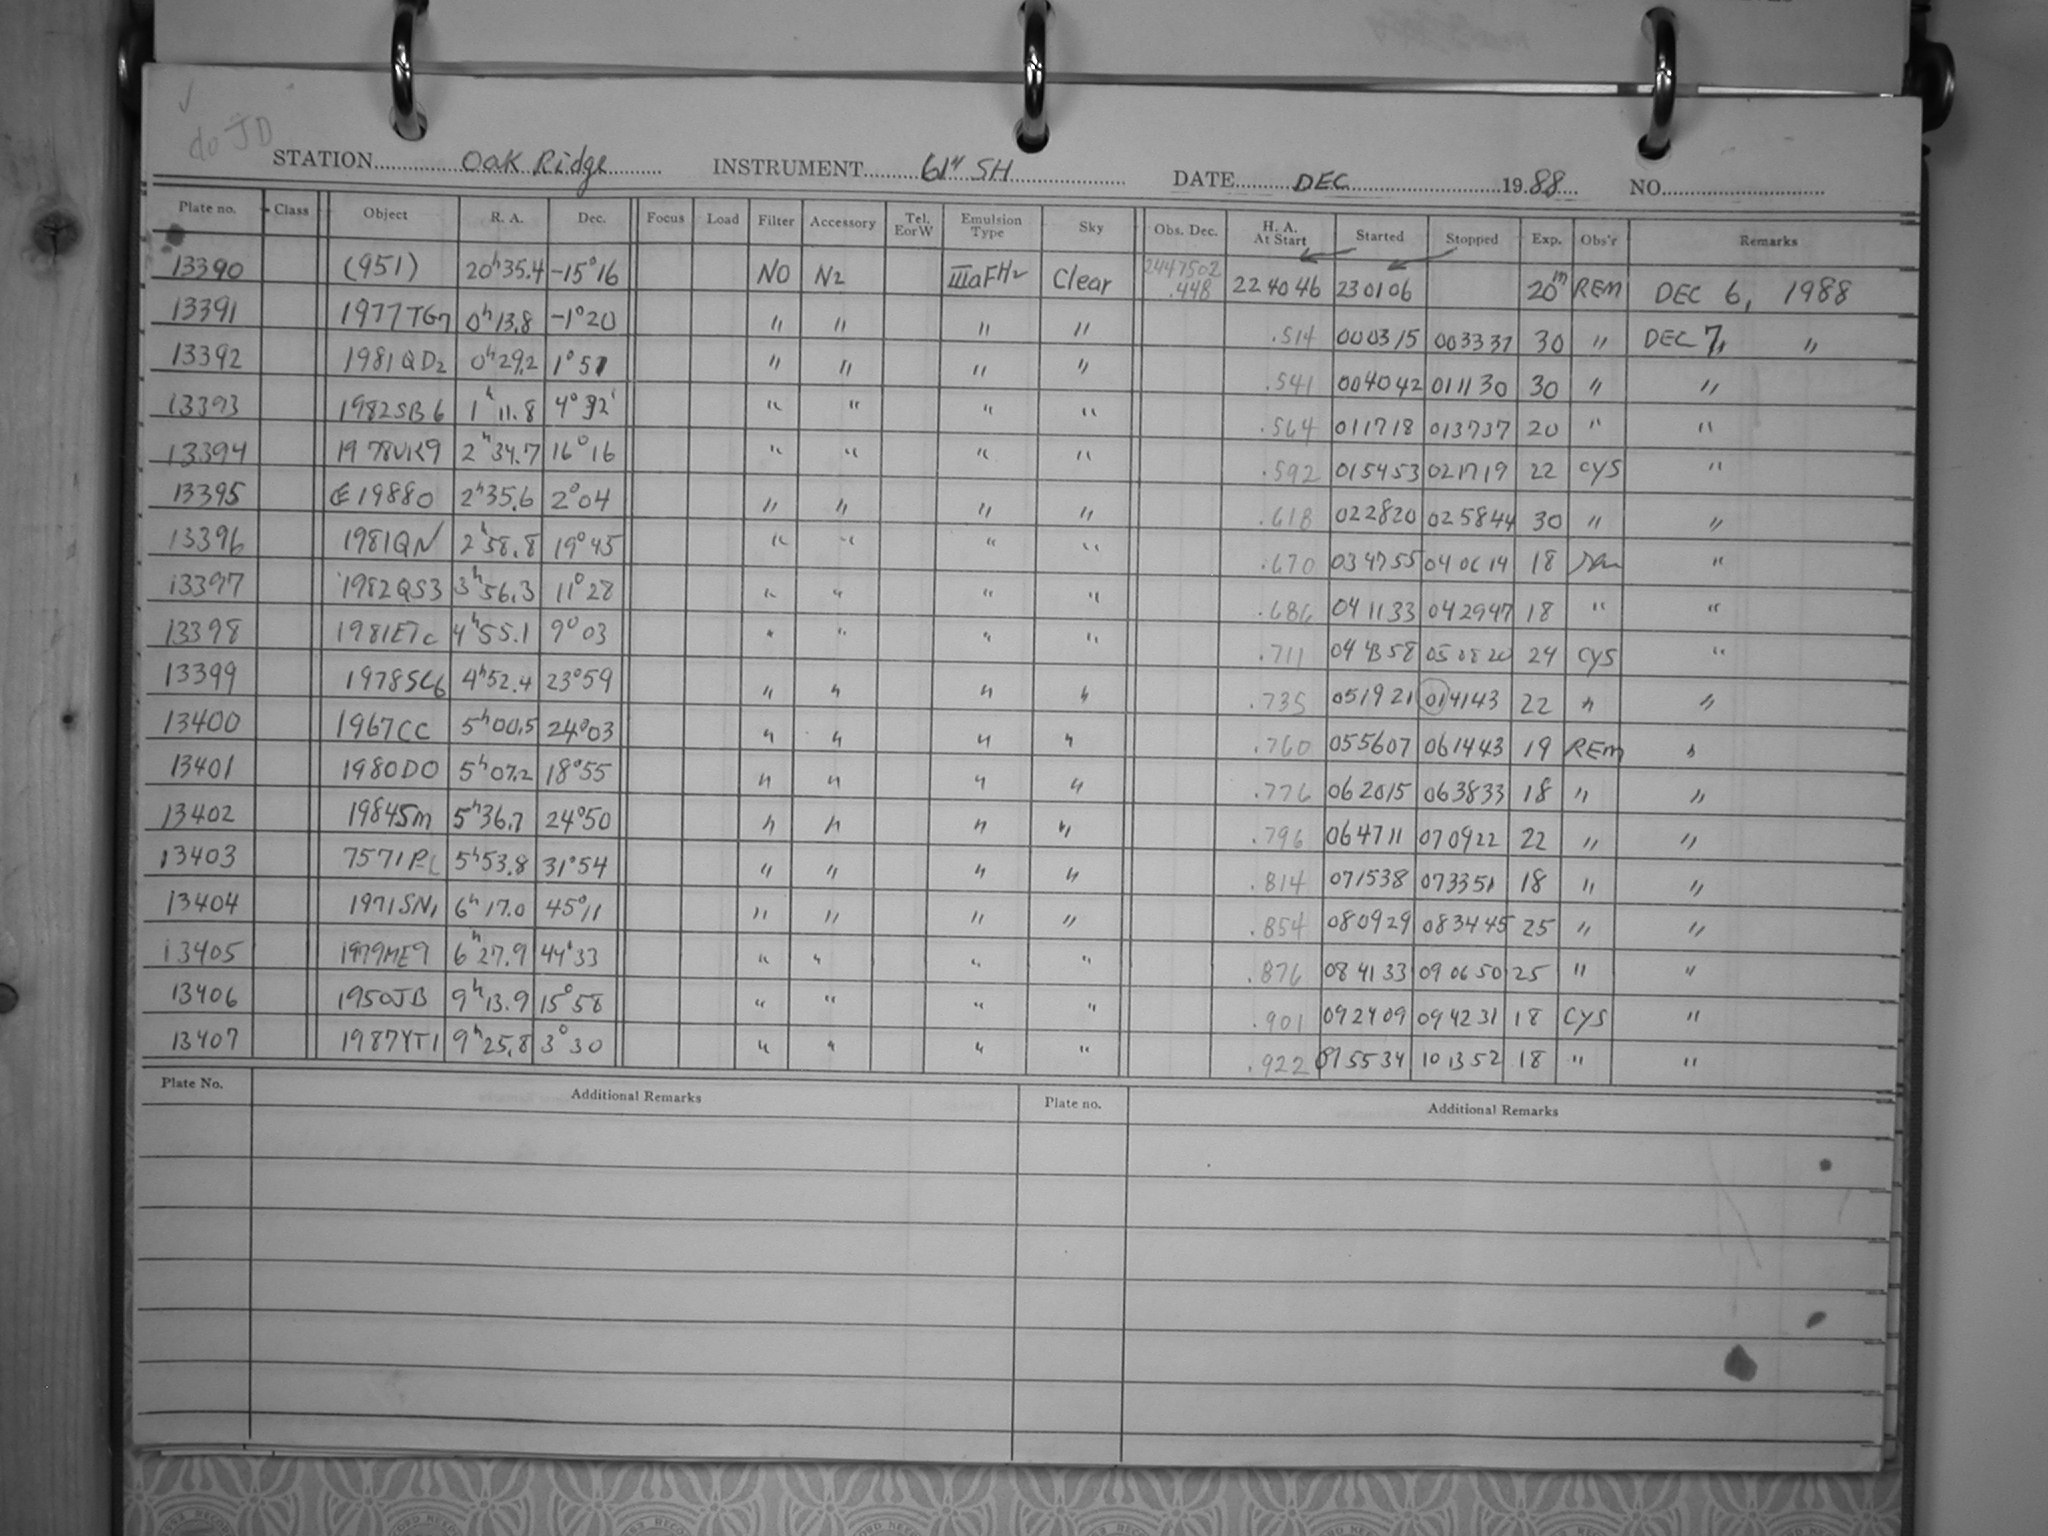 do JD
STATION Oak Ridge INSTRUMENT 61" SH DATE DEC 1988 NO.
Plate no. Class Object R. A. Dec. Focus Load Filter Accessory Tel. EorW Emulsion Type Sky Obs. Dec. H. A. At Start Started Stopped Exp. Obs'r Remarks
13390 (951) 20h35.4 -15°16 NO N2 IIIaFH2 Clear 2447502 .448 224046 230106 20m REM DEC 6, 1988
13391 1977TG7 0h13.8 -1°20 " " " " .514 000315 003331 30 " DEC 7, "
13392 1981QD2 0h29.2 1°51 " " " " .541 004042 011130 30 " "
13393 1982SB6 1h11.8 4°32' " " " " .564 011718 013737 20 " "
13394 1978VK9 2h34.7 16°16 " " " " .592 015453 021719 22 CYS "
13395 1988O 2h35.6 2°04 " " " " .618 022820 025844 30 " "
13396 1981QN 2h58.8 19°45 " " " " .670 034755 040614 18 "
13397 1982QS3 3h56.3 11°28 " " " " .686 041133 042947 18 " "
13398 4h55.1 9°03 " " " " .711 044358 050820 24 CYS "
13399 1978SC6 4h52.4 23°59 " " " " .735 051921 014143 22 " "
13400 1967CC 5h00.5 24°03 " " " " .760 055607 061443 19 REM "
13401 1980DO 5h07.2 18°55 " " " " .776 062015 063833 18 " "
13402 1984SM 5h36.7 24°50 " " " " .796 064711 070922 22 " "
13403 7571PL 5h53.8 31°54 " " " " .814 071538 073351 18 " "
13404 1971SN1 6h17.0 45°11 " " " " .854 080929 083445 25 " "
13405 1979ME9 6h27.9 44°33 " " " " .876 084133 090650 25 " "
13406 1950JB 9h13.9 15°58 " " " " .901 092409 094231 18 CYS "
13407 1987YT1 9h25.8 3°30 " " " " .922 095534 101352 18 " "
Plate No. Additional Remarks Plate no. Additional Remarks